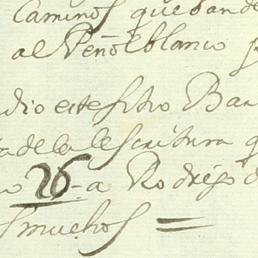 Caminos que ban de
al Peñol blanco p
dio este sitio Bar
a de la Escritura q
o 26 - a Rodrigo d
s muchos =